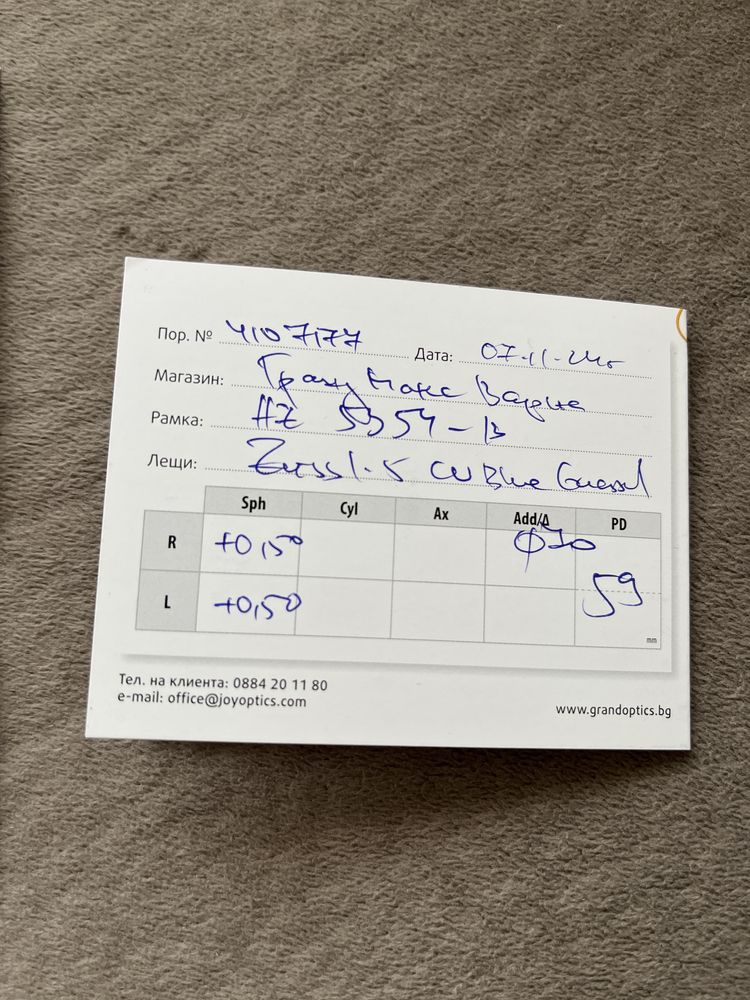 Пор. № 4107177 Дата: 07.11.24г
Магазин: Гранд Макс Варна
Рамка: HZ 5354-B
Лещи: Zeiss 1.5 CV Blue Guard
Sph Cyl Ax Add/Δ PD
R +0,50 φ70
59
L +0,50
mm
Тел. на клиента: 0884 20 11 80
e-mail: office@joyoptics.com
www.grandoptics.bg